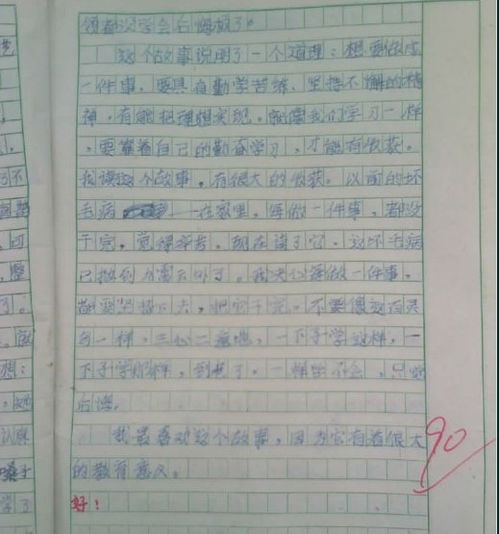 领都没学会后悔极了。
这个故事说明了一个道理：想要做成
一件事，要具有勤学苦练，坚持不懈的精
神，有能把理想实现。就像我们学习一样
，要靠着自己的勤奋学习，才能有收获。
我读这个故事，有很大的收获。以前的坏
毛病 一在家里，每做一件事，都没
干完，觉得辛苦。现在读了它，这坏毛病
已抛到九霄云外了。我决心每做一件事，
都要坚持下去，把它干完。不要像这百灵
鸟一样，三心二意地，一下子学这样，一
下子学那样，到老了，一样也不会，只好
后悔。
我最喜欢这个故事，因为它有着很大
的教育意义。
90
好！